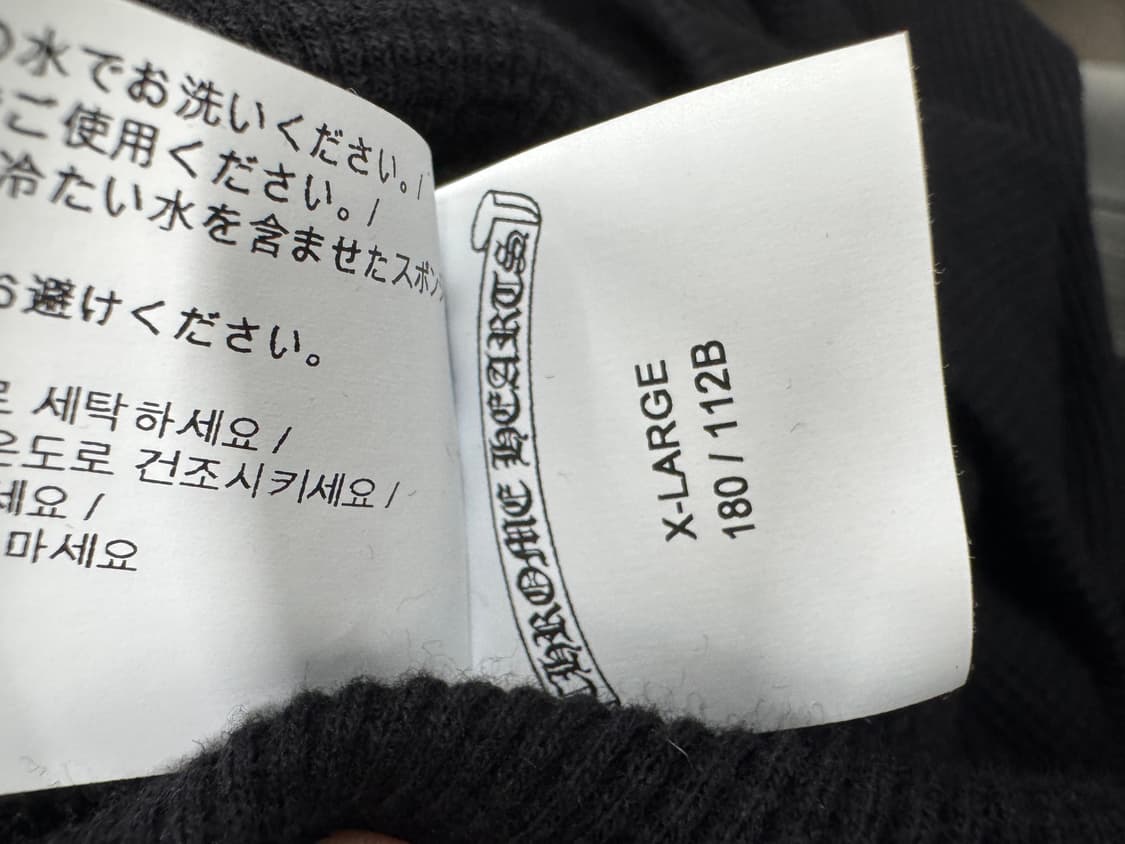 水でお洗いください。/
ご使用ください。/
冷たい水を含ませたスポン
避けください。
세탁하세요 /
온도로 건조시키세요 /
세요 /
마세요
CHROME HEARTS
X-LARGE
180 / 112B